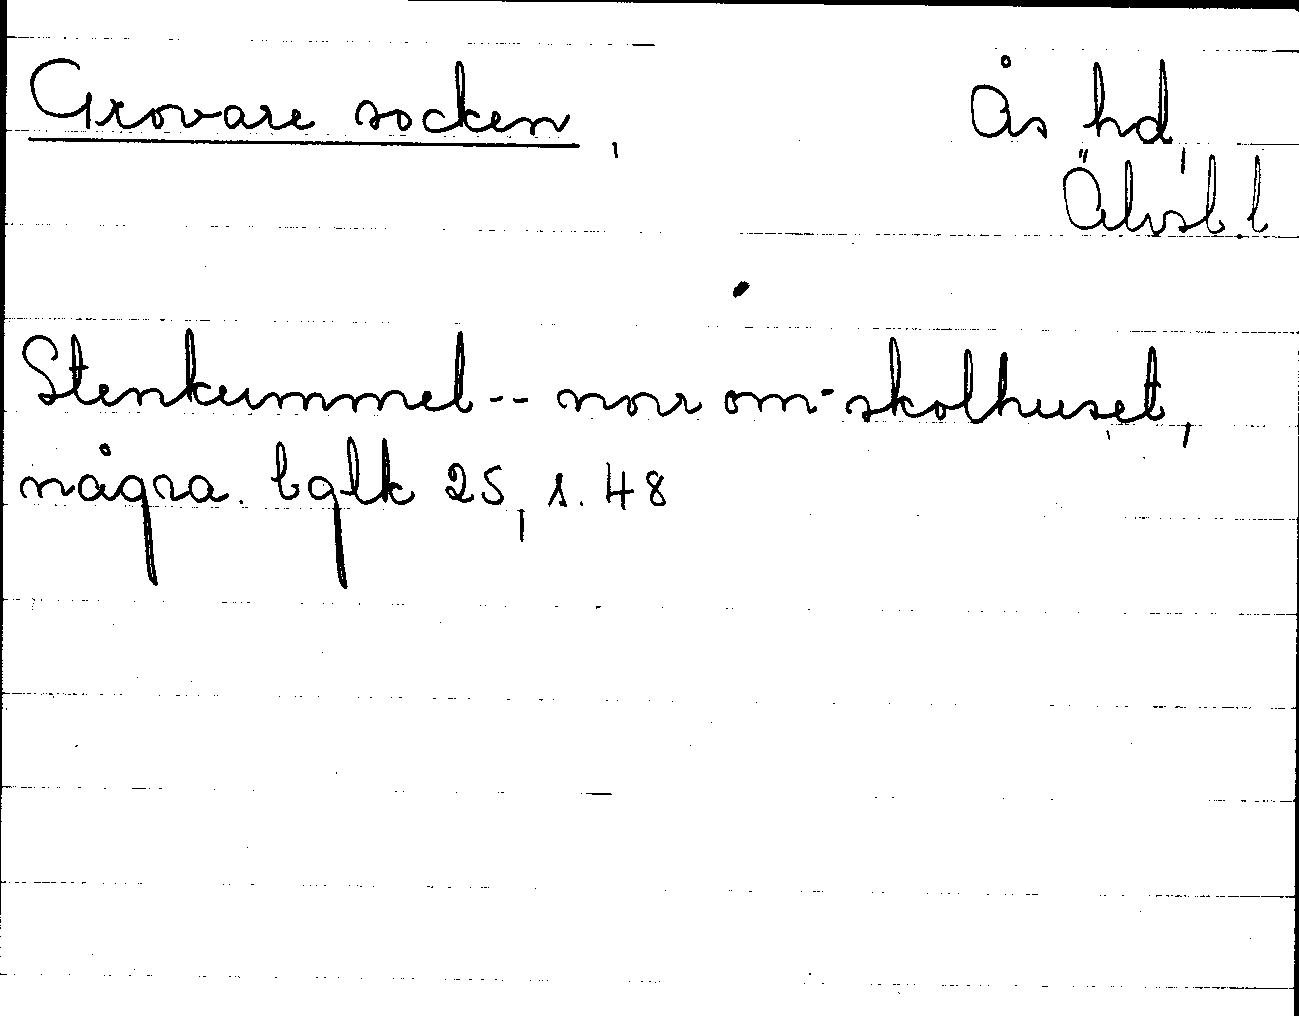 Grovare socken,
Ås hd,
Älvsb. l
Stenkummel -- norr om skolhuset,
några. bglk 25, s. 48